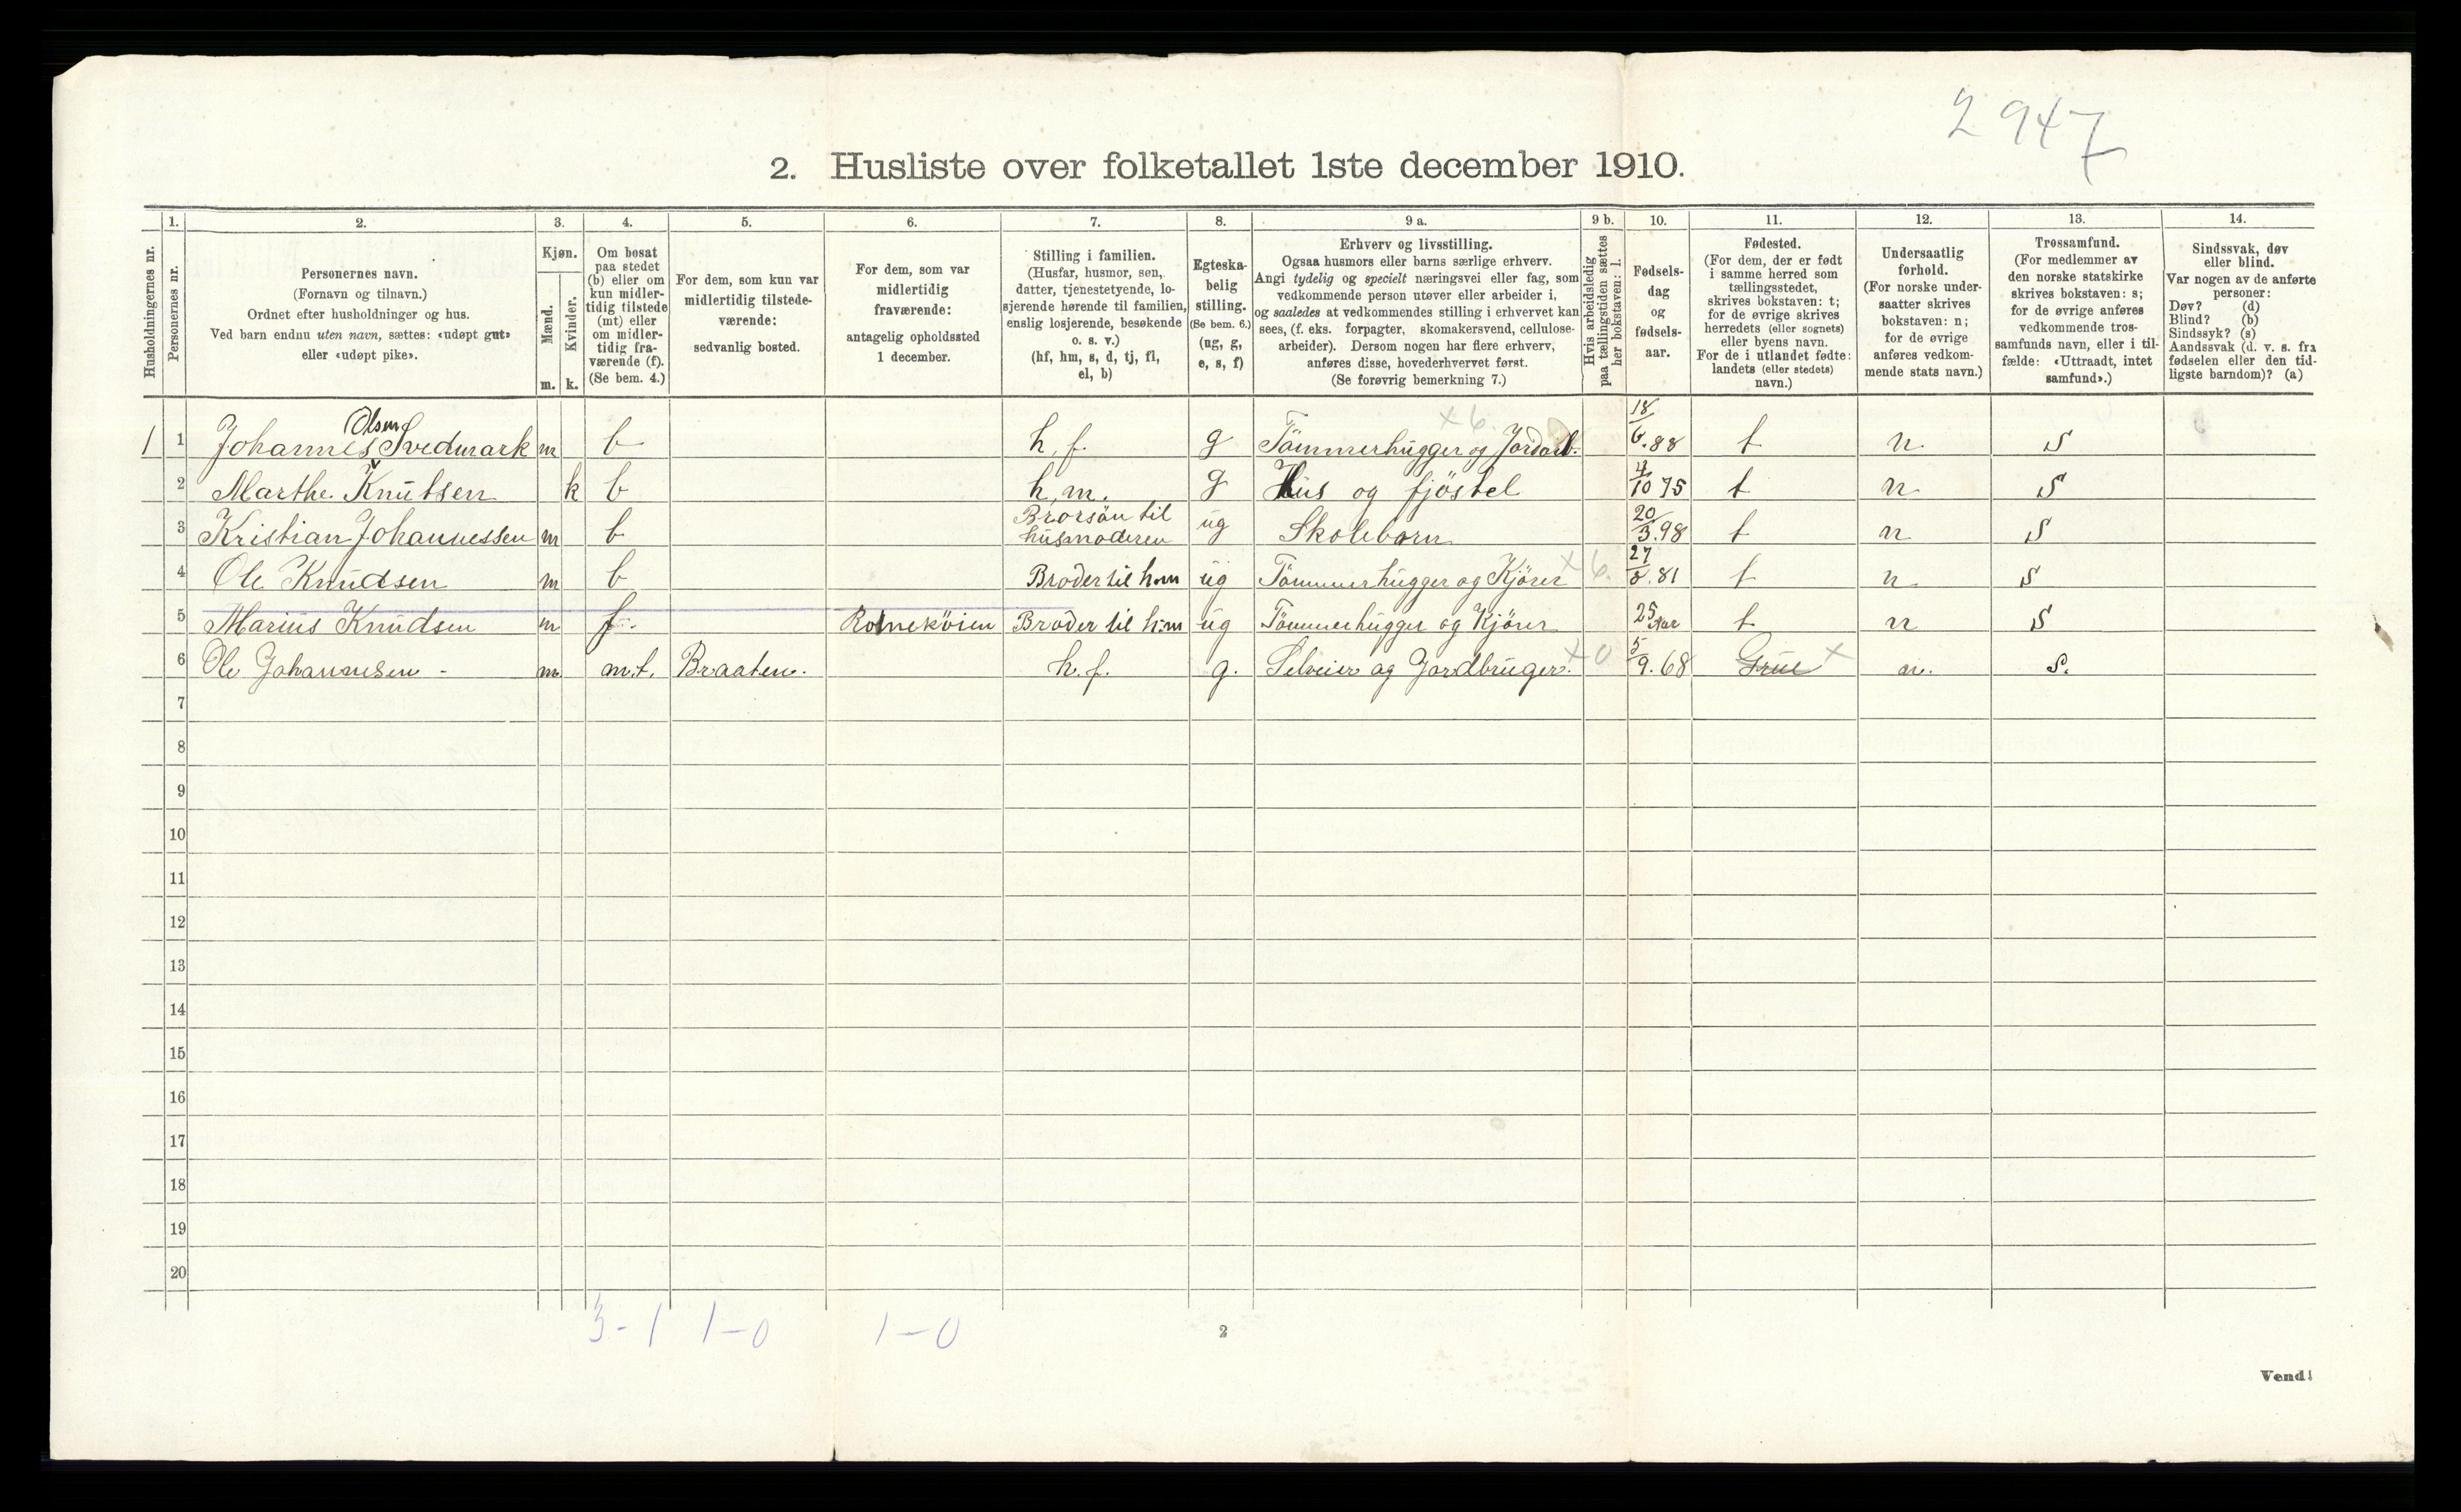 2947
2. Husliste over folketallet 1ste december 1910.
Husholdningernes nr.
1.
Personernes nr.
2.
Personernes navn.
(Fornavn og tilnavn.)
Ordnet efter husholdninger og hus.
Ved barn endnu uten navn, sættes: «udøpt gut»
eller «udøpt pike».
3.
Kjøn.
Mænd.
Kvinder.
m. k.
4.
Om bosat
paa stedet
(b) eller om
kun midler-
tidig tilstede
(mt) eller
om midler-
tidig fra-
værende (f).
(Se bem. 4.)
5.
For dem, som kun var
midlertidig tilstede-
værende:
sedvanlig bosted.
6.
For dem, som var
midlertidig
fraværende:
antagelig opholdssted
1 december.
7.
Stilling i familien.
(Husfar, husmor, søn,
datter, tjenestetyende, lo-
sjerende hørende til familien,
enslig losjerende, besøkende
o. s. v.)
(hf, hm, s, d, tj, fl,
el, b)
8.
Egteska-
belig
stilling.
(Se bem. 6.)
(ug, g,
e, s, f)
9 a.
Erhverv og livsstilling.
Ogsaa husmors eller barns særlige erhverv.
Angi tydelig og specielt næringsvei eller fag, som
vedkommende person utøver eller arbeider i,
og saaledes at vedkommendes stilling i erhvervet kan
sees, (f. eks. forpagter, skomakersvend, cellulose-
arbeider). Dersom nogen har flere erhverv,
anføres disse, hovederhvervet først.
(Se forøvrig bemerkning 7.)
9 b.
Hvis arbeidsledig
paa tællingstiden sættes
her bokstaven: l.
10.
Fødsels-
dag
og
fødsels-
aar.
11.
Fødested.
(For dem, der er født
i samme herred som
tællingsstedet,
skrives bokstaven: t;
for de øvrige skrives
herredets (eller sognets)
eller byens navn.
For de i utlandet fødte:
landets (eller stedets)
navn.)
12.
Undersaatlig
forhold.
(For norske under-
saatter skrives
bokstaven: n;
for de øvrige
anføres vedkom-
mende stats navn.)
13.
Trossamfund.
(For medlemmer av
den norske statskirke
skrives bokstaven: s;
for de øvrige anføres
vedkommende tros-
samfunds navn, eller i til-
fælde: «Uttraadt, intet
samfund».)
14.
Sindssvak, døv
eller blind.
Var nogen av de anførte
personer:
Døv? (d)
Blind? (b)
Sindssyk? (s)
Aandssvak (d. v. s. fra
fødselen eller den tid-
ligste barndom)? (a)
Olsen
1 1 Johannes Svedmark m b h.f. g Tömmerhugger og Jordarb. x 6. 18/6.88 t n S
2 Marthe Knutsen k b h.m. g Hus og fjöstel 4/10 75 t n S
3 Kristian Johannessen m b Brorsön til husmoderen ug Skolebarn 20/3.98 t n S
4 Ole Knudsen m b Broder til h:m ug Tömmerhugger og Kjörer x 6. 27/8.81 t n S
5 Marius Knudsen m f. Broder til h:m ug Tömmerhugger og Kjörer t n S
6 Ole Johannesen - m. m.t. Braaten. h.f. g. Selveier og Jordbruger. x 0 5/9.68 Grue x n. S.
7
8
9
10
11
12
13
14
15
16
17
18
19
20
3-1 1-0 1-0
2
Vend!